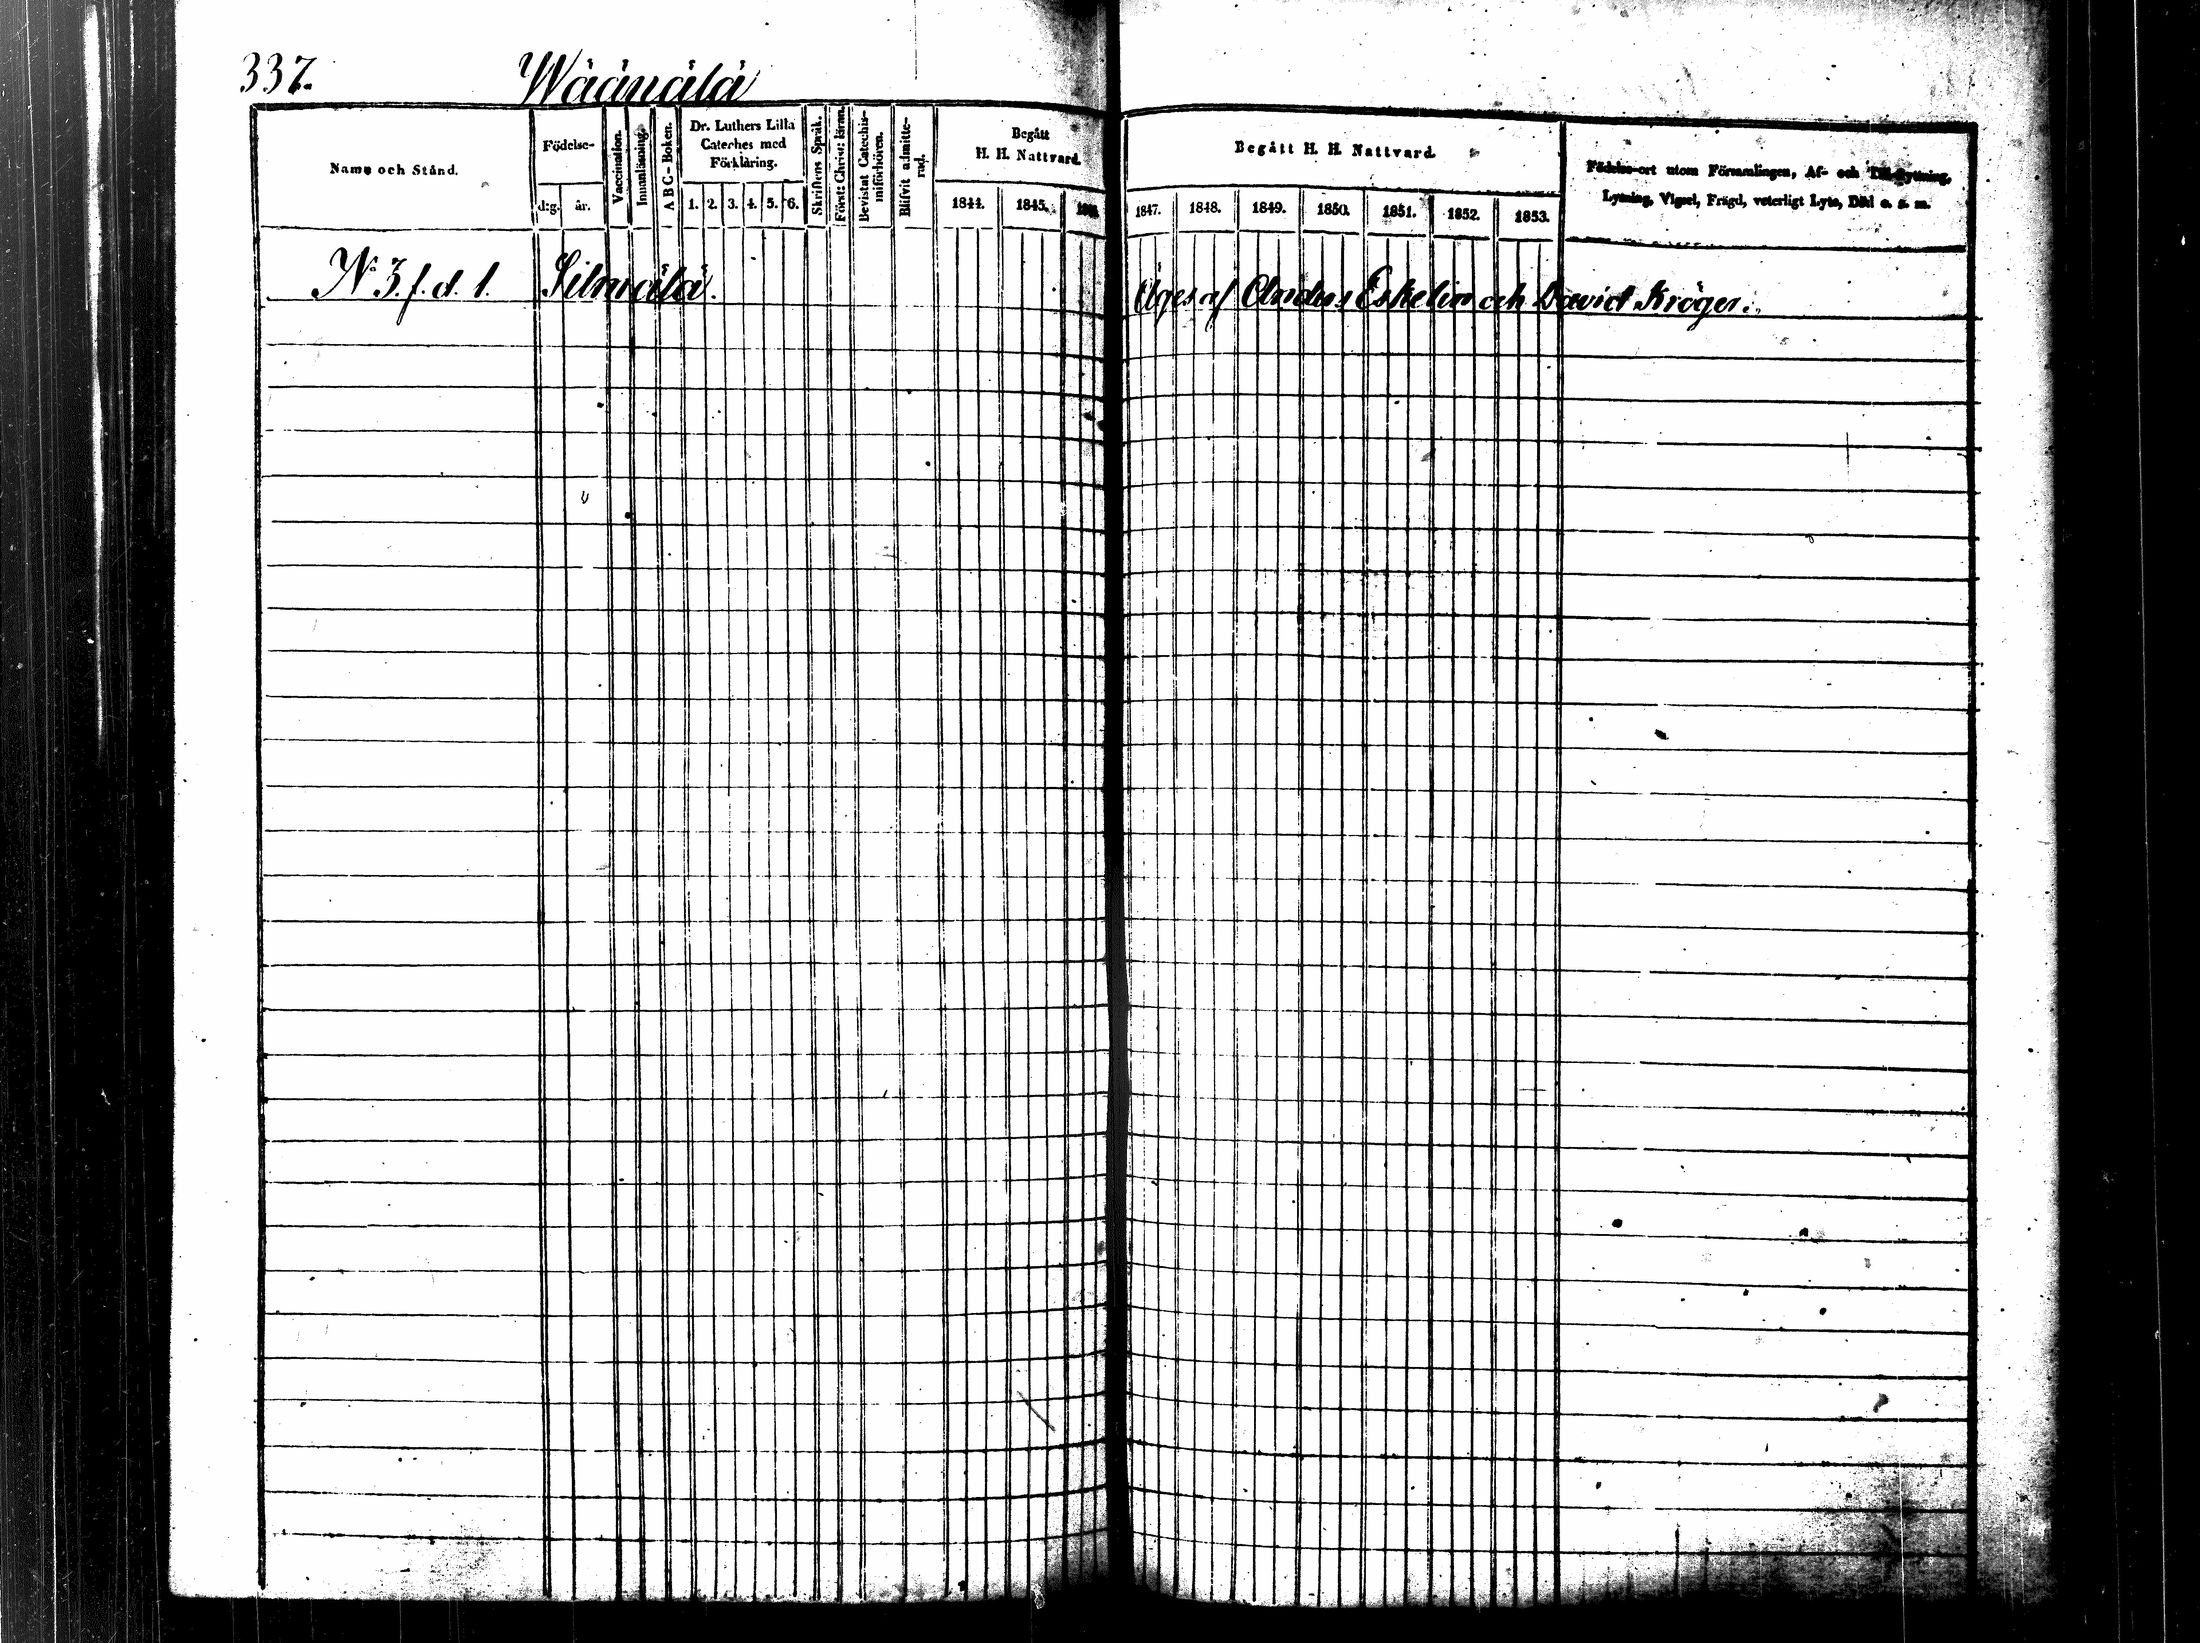 337. Wäänälä
Namn och Stånd.
Födelse-
d:g. år.
Vaccination.
Innanläsning.
A B C-Boken.
Dr. Luthers Lilla
Cateches med
Förklaring.
1. 2. 3. 4. 5. 6.
Skriftens Språk.
Först: Christ: läran.
Bevistat Catechis-
miförhören.
Blifvit admitte-
rad.
Begått
H. H. Nattvard.
1844. 1845.
Begått H. H. Nattvard.
1847. 1848. 1849. 1850. 1851. 1852. 1853.
Födelse-ort utom Församlingen, Af- och Till-flyttning,
Lysning, Vigsel, Frägd, veterligt Lyte, Död o. s. m.
N:o 3. f. d. 1. Silmälä.
Äges af Anders Eskelin och David Kröger.